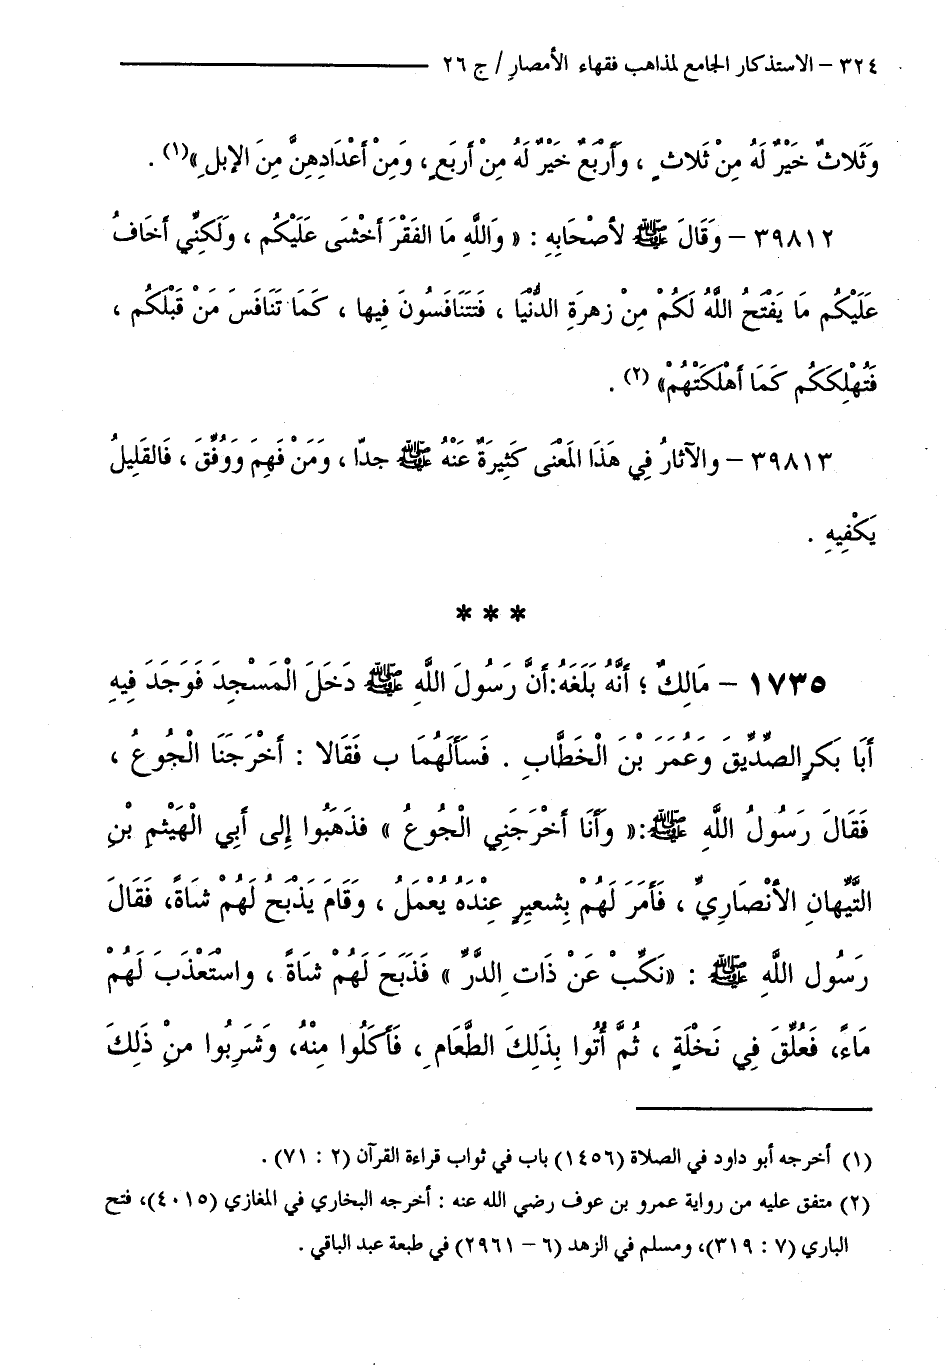 ٣٢٤ – الاستذكار الجامع لمذاهب فقهاء الأمصار / ج ٢٦
وَثَلاثٌ خَيْرٌ لَهُ مِنْ ثَلاثٍ ، وَأَرْبَعٌ خَيْرٌ لَهُ مِنْ أَربَعٍ ، وَمِنْ أَعْدَادِهِنَّ مِنَ الإبلِ »(١) .
٣٩٨١٢ – وَقَالَ ﷺ لأصْحَابِهِ : « وَاللَّهِ مَا الفَقْرَ أخْشَى عَلَيْكُم ، وَلَكِنِّي أخَافُ
عَلَيْكُم مَا يَفْتَحُ اللَّهُ لَكُمْ مِنْ زهرَةِ الدُّنْيَا ، فَتَتَنَافَسُونَ فِيها ، كَمَا تَنَافَسَ مَنْ قَبْلَكُم ،
فَتُهْلِكَكُم كَمَا أهْلَكَتْهُمْ» (٢) .
٣٩٨١٣ – والآثارُ فِي هَذَا المَعْنَى كَثِيرَةٌ عَنْهُ ﷺ جدّا ، ومَنْ فَهِمَ وَوُفِّقَ ، فَالقَلِيلُ
يَكْفِيهِ .
* * *
١٧٣٥ – مَالِكٌ ؛ أَنَّهُ بَلَغَهُ:أَنَّ رَسُولَ اللَّهِ ﷺ دَخَلَ الْمَسْجِدَ فَوَجَدَ فِيهِ
أَبَا بَكرٍ الصِّدِّيقَ وَعُمَرَ بْنَ الْخَطَّابِ . فَسَأَلَهُمَا ب فَقَالا : أَخْرَجَنَا الْجُوعُ ،
فَقَالَ رَسُولُ اللَّهِ ﷺ:« وَأَنَا أَخْرَجَنِي الْجُوعُ » فذَهَبُوا إِلى أَبِي الْهَيْثمِ بْنِ
التَّيِّهانِ الأَنْصَارِيِّ ، فَأَمَرَ لَهُمْ بِشعيرٍ عِنْدَهُ يُعْمَلُ ، وَقَامَ يَذْبَحُ لَهُمْ شَاةً، فَقَالَ
رَسُولُ اللَّهِ ﷺ : «نَكِّبْ عَنْ ذَاتِ الدَّرِّ » فَذَبَحَ لَهُمْ شَاةً ، واسْتَعْذَبَ لَهُمْ
مَاءً، فَعُلِّقَ فِي نَخْلَةٍ ، ثُمَّ أُتُوا بِذَلِكَ الطَّعَامِ ، فَأَكَلُوا مِنْهُ، وَشَرِبُوا منْ ذَلِكَ
(١) أخرجه أبو داود في الصلاة (١٤٥٦) باب في ثواب قراءة القرآن (٢ : ٧١) .
(٢) متفق عليه من رواية عمرو بن عوف رضي الله عنه : أخرجه البخاري في المغازي (٤٠١٥)، فتح
الباري (٧ : ٣١٩)، ومسلم في الزهد (٦ – ٢٩٦١) في طبعة عبد الباقي .